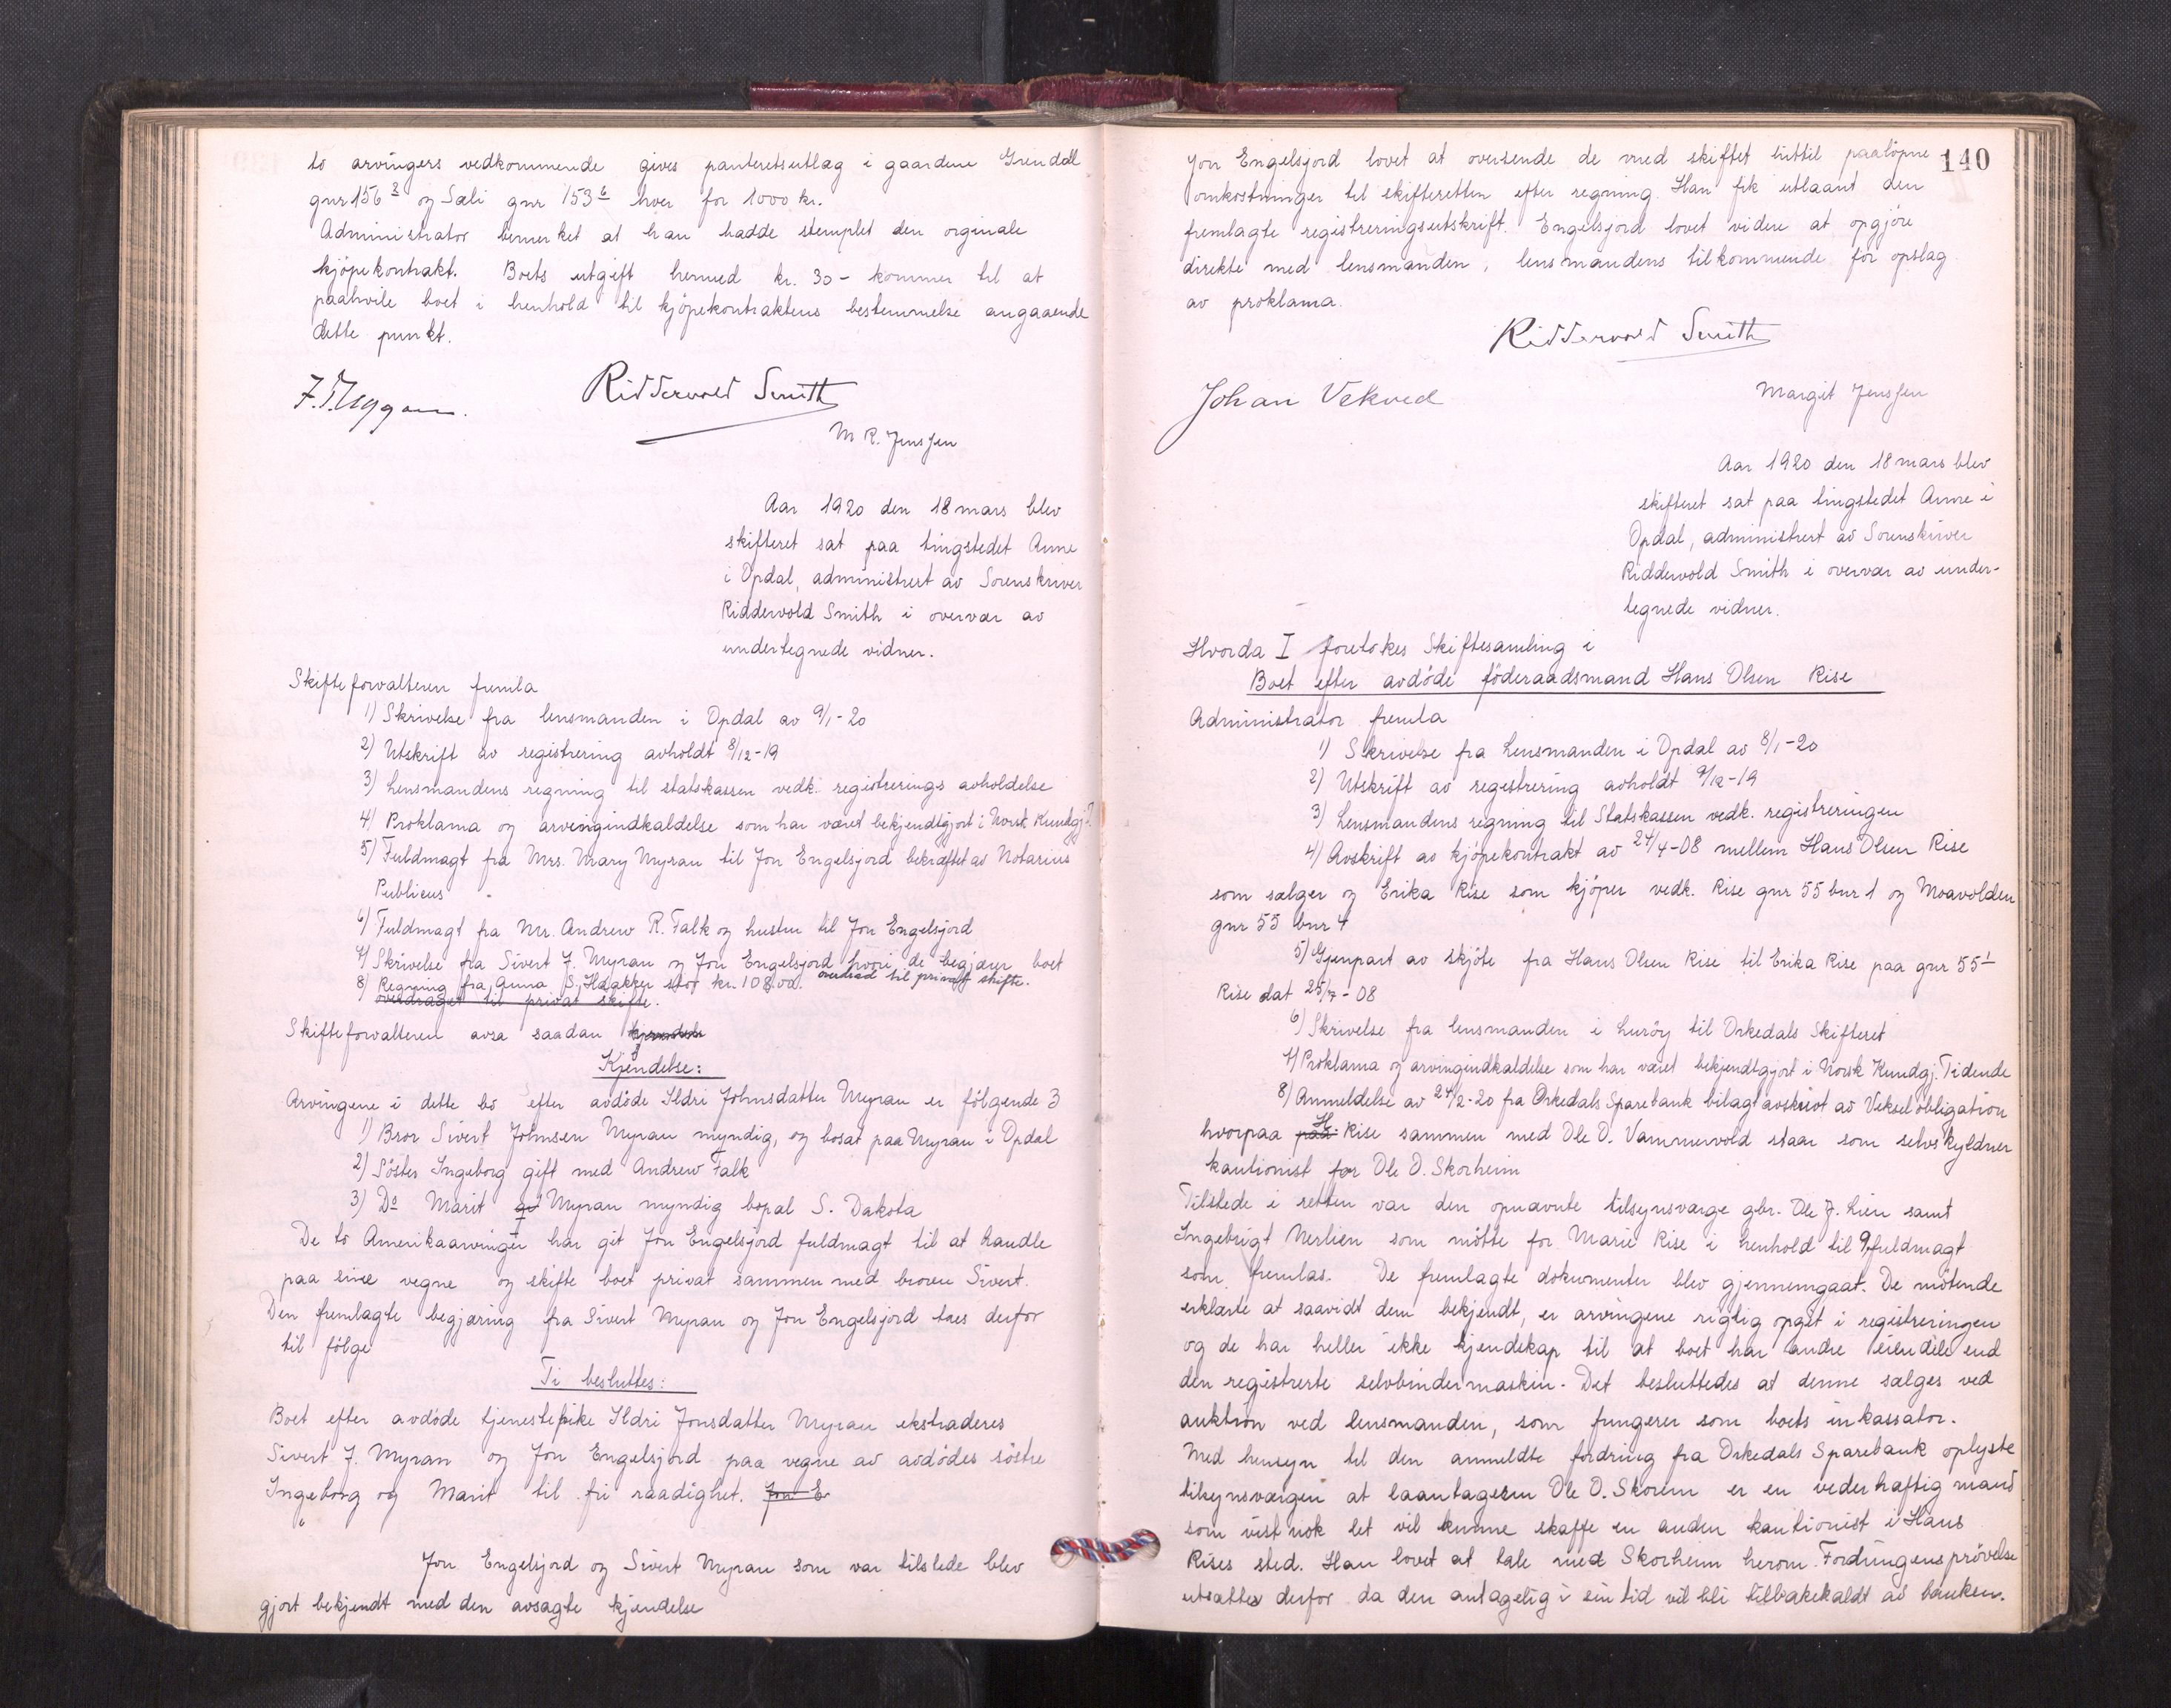 to arvingers vedkommende gives panteretsutlæg i gaardene Grendal
gnr 156 8 og Sæli gnr 153 6 hver for 1000 kr.
Administrator bemerket at han hadde stemplet den orginale
kjøpekontrakt. Boets utgift herved kr. 30- kommer til at
paahvile boet i henhold til kjøpekontraktens bestemmelse angaaende
dette punkt.
Riddervold Smith
M R. Jenssen
Aar 1920 den 18 mars blev
skifteret sat paa tingstedet Aune
i Opdal, administrert av Sorenskriver
Riddervold Smith i overvær av
undertegnede vidner.
Skifteforvalteren fremla
1) Skrivelse fra lensmanden i Opdal av 9/1-20
2) Utskrift av registrering avholdt 8/12-19
3) Lensmandens regning til statskassen vedk. registrerings avholdelse
4) Proklama og arvingindkaldelse som har været bekjendtgjort i Norsk Kundgj.T.
5) Fuldmagt fra Mrs. Mary Myran til Jon Engelsjord bekræftet av Notarius
Publicus
6) Fuldmagt fra Mr. Andrew R. Falk og hustru til Jon Engelsjord
7) Skrivelse fra Sivert J. Myran og Jon Engelsjord hvori de begjærer boet
overdrad til privat skifte.
8) Regning fra Anna S. Haakker stor kr. 108.00.
overdraget til privat skifte.
Skifteforvalteren avsa saadan kjendelse
Kjendelse:
Arvingene i dette bo efter avdøde Ildri Johnsdatter Myran er følgende 3
1) Bror Sivert Johnsen Myran myndig, og bosat paa Myran i Opdal
2) Søster Ingeborg gift med Andrew Falk
3) Do Marit gi Myran myndig bopal S. Dakota
De to Amerikaarvinger har git Jon Engelsjord fuldmagt til at handle
paa sine vegne og skifte boet privat sammen med broren Sivert.
Den fremlagte begjæring fra Sivert Myran og Jon Engelsjord taes derfor
til følge
Ti besluttes:
Boet efter avdøde tjenestepike Ildri Jonsdatter Myran ekstraderes
Sivert J. Myran og Jon Engelsjord paa vegne av avdødes søstre
Ingeborg og Marit til fri raadighet. Jon E
Jon Engelsjord og Sivert Myran som var tilstede blev
gjort bekjendt med den avsagte kjendelse
140
Jon Engelsjord lovet at oversende de med skiftet hittil paaløpne
omkostninger til skifteretten efter regning. Han fik utlaant den
fremlagte registreringsutskrift. Engelsjord lovet videre at opgjøre
direkte med lensmanden, lensmandens tilkommende for opslag
av proklama.
Riddervold Smith
Johan Vekved
Margit Jenssen
Aar 1920 den 18 mars blev
skifteret sat paa tingstedet Aune i
Opdal, administrert av Sorenskriver
Riddervold Smith i overvær av under-
tegnede vidner.
Hvorda I foretokes Skiftesamling i
Boet efter avdøde føderaadsmand Hans Olsen Rise
Administrator fremla
1) Skrivelse fra Lensmanden i Opdal av 8/1-20
2) Utskrift av registrering avholdt 9/12-19
3) Lensmandens regning til Statskassen vedk. registreringen
4) Avskrift av kjøpekontrakt av 24/4-08 mellem Hans Olsen Rise
som sælger og Erika Rise som kjøper vedk. Rise gnr 55 bnr 1 og Moavolden
gnr 55 bnr 4
5) Gjenpart av skjøte fra Hans Olsen Rise til Erika Rise paa gnr 55 1
Rise dat 25/7-08
6) Skrivelse fra lensmanden i Lurøy til Orkedals Skifteret
7) Proklama og arvingindkaldelse som har været bekjendtgjort i Norsk Kundgj. Tidende
8) Anmeldelse av 24/2-20 fra Orkedals Sparebank bilagt avskrivt av Vekselobligation
hvorpaa paa H. Rise sammen med Ole O. Vammervold staar som selvskyldner
kautionist for Ole O. Skorheim
Tilstede i retten var den opnævnte tilsynsværge gbr. Ole J. Lien samt
Ingebrigt Merlien som møtte for Marie Rise i henhold til 9, fuldmagt
som fremlas. De fremlagte dokumenter blev gjennemgaat. De møtende
erklærte at saavidt dem bekjendt, er arvingene rigtig opgit i registreringen
og de har heller ikke kjendskap til at boet har andre eiendele end
den registrerte selvbindermaskin. Det besluttedes at denne sælges ved
auktion ved lensmanden, som fungerer som boets inkassator.
Med hensyn til den anmeldte fordring fra Orkedals Sparebank oplyste
tilsynsværgen at laantageren Ole O. Skorem er en vederhæftig mand
som vistnok let vil kunne skaffe en anden kautionist i Hans
Rises sted. Han lovet at tale med Skorheim herom. Fordringens prøvelse
utsattes derfor da den antagelig i sin tid vil bli tilbakekaldt av banken.